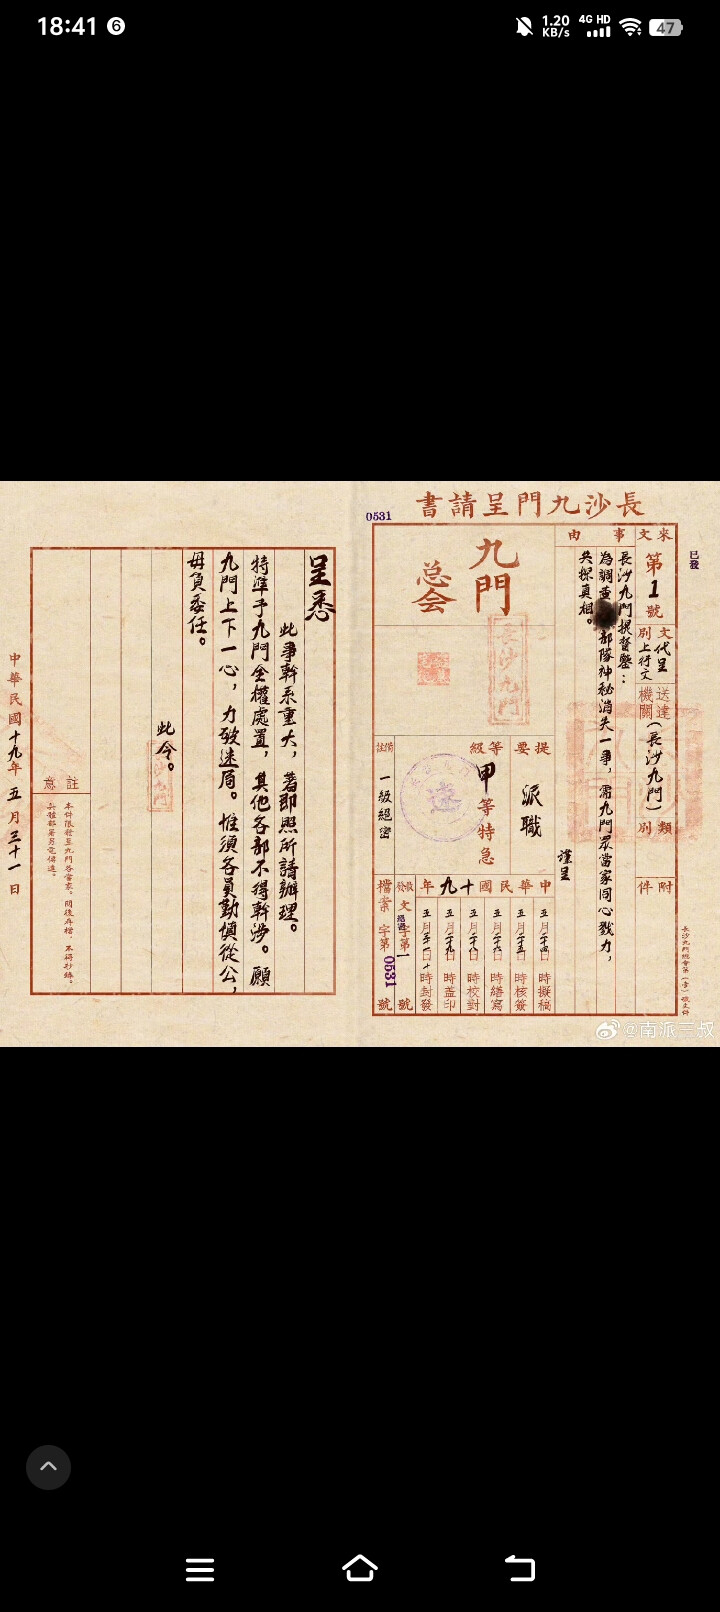 18:41
6
1.20 KB/s
4G HD
47
長沙九門呈請書
0531
已發
來文
第1號
文別
代呈
上行文
送達機關
(長沙九門)
類別
附件
事由
長沙九門提督鑒：
為調查
部隊神秘消失一事，需九門眾當家同心戮力，
共探真相。
謹呈
九門
总会
長沙九門
提要
派職
等級
甲等特急
速
備註
一級絕密
中華民國十九年
五月二十四日 時擬稿
五月二十五日 時核簽
五月二十六日 時繕寫
五月二十八日 時校對
五月二十九日 時盖印
五月三十一日十時封發
收發文
字第一號
檔案
字第0531號
呈悉
此事幹系重大，著即照所請辦理。
特準予九門全權處置，其他各部不得幹涉。願
九門上下一心，力破迷局。惟須各員勤慎從公，
毋負委任。
此令。
註意
本件限發至九門各當家。閱後存檔，不得抄錄。
中華民國十九年五月三十一日
@南派三叔